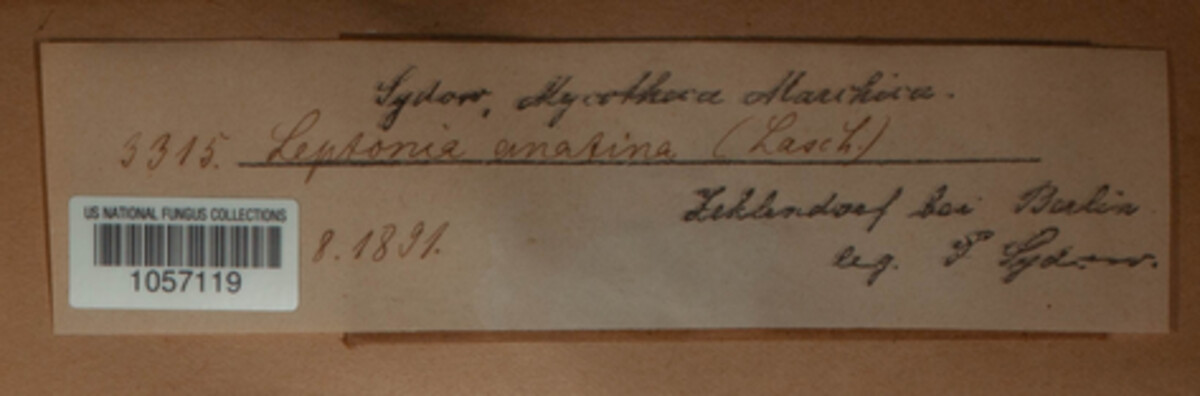 Sydow, Mycotheca Marchica.
3315. Leptonia anatina (Lasch.)
Zehlendorf bei Berlin
leg. P Sydow.
8. 1891.
US NATIONAL FUNGUS COLLECTIONS
1057119